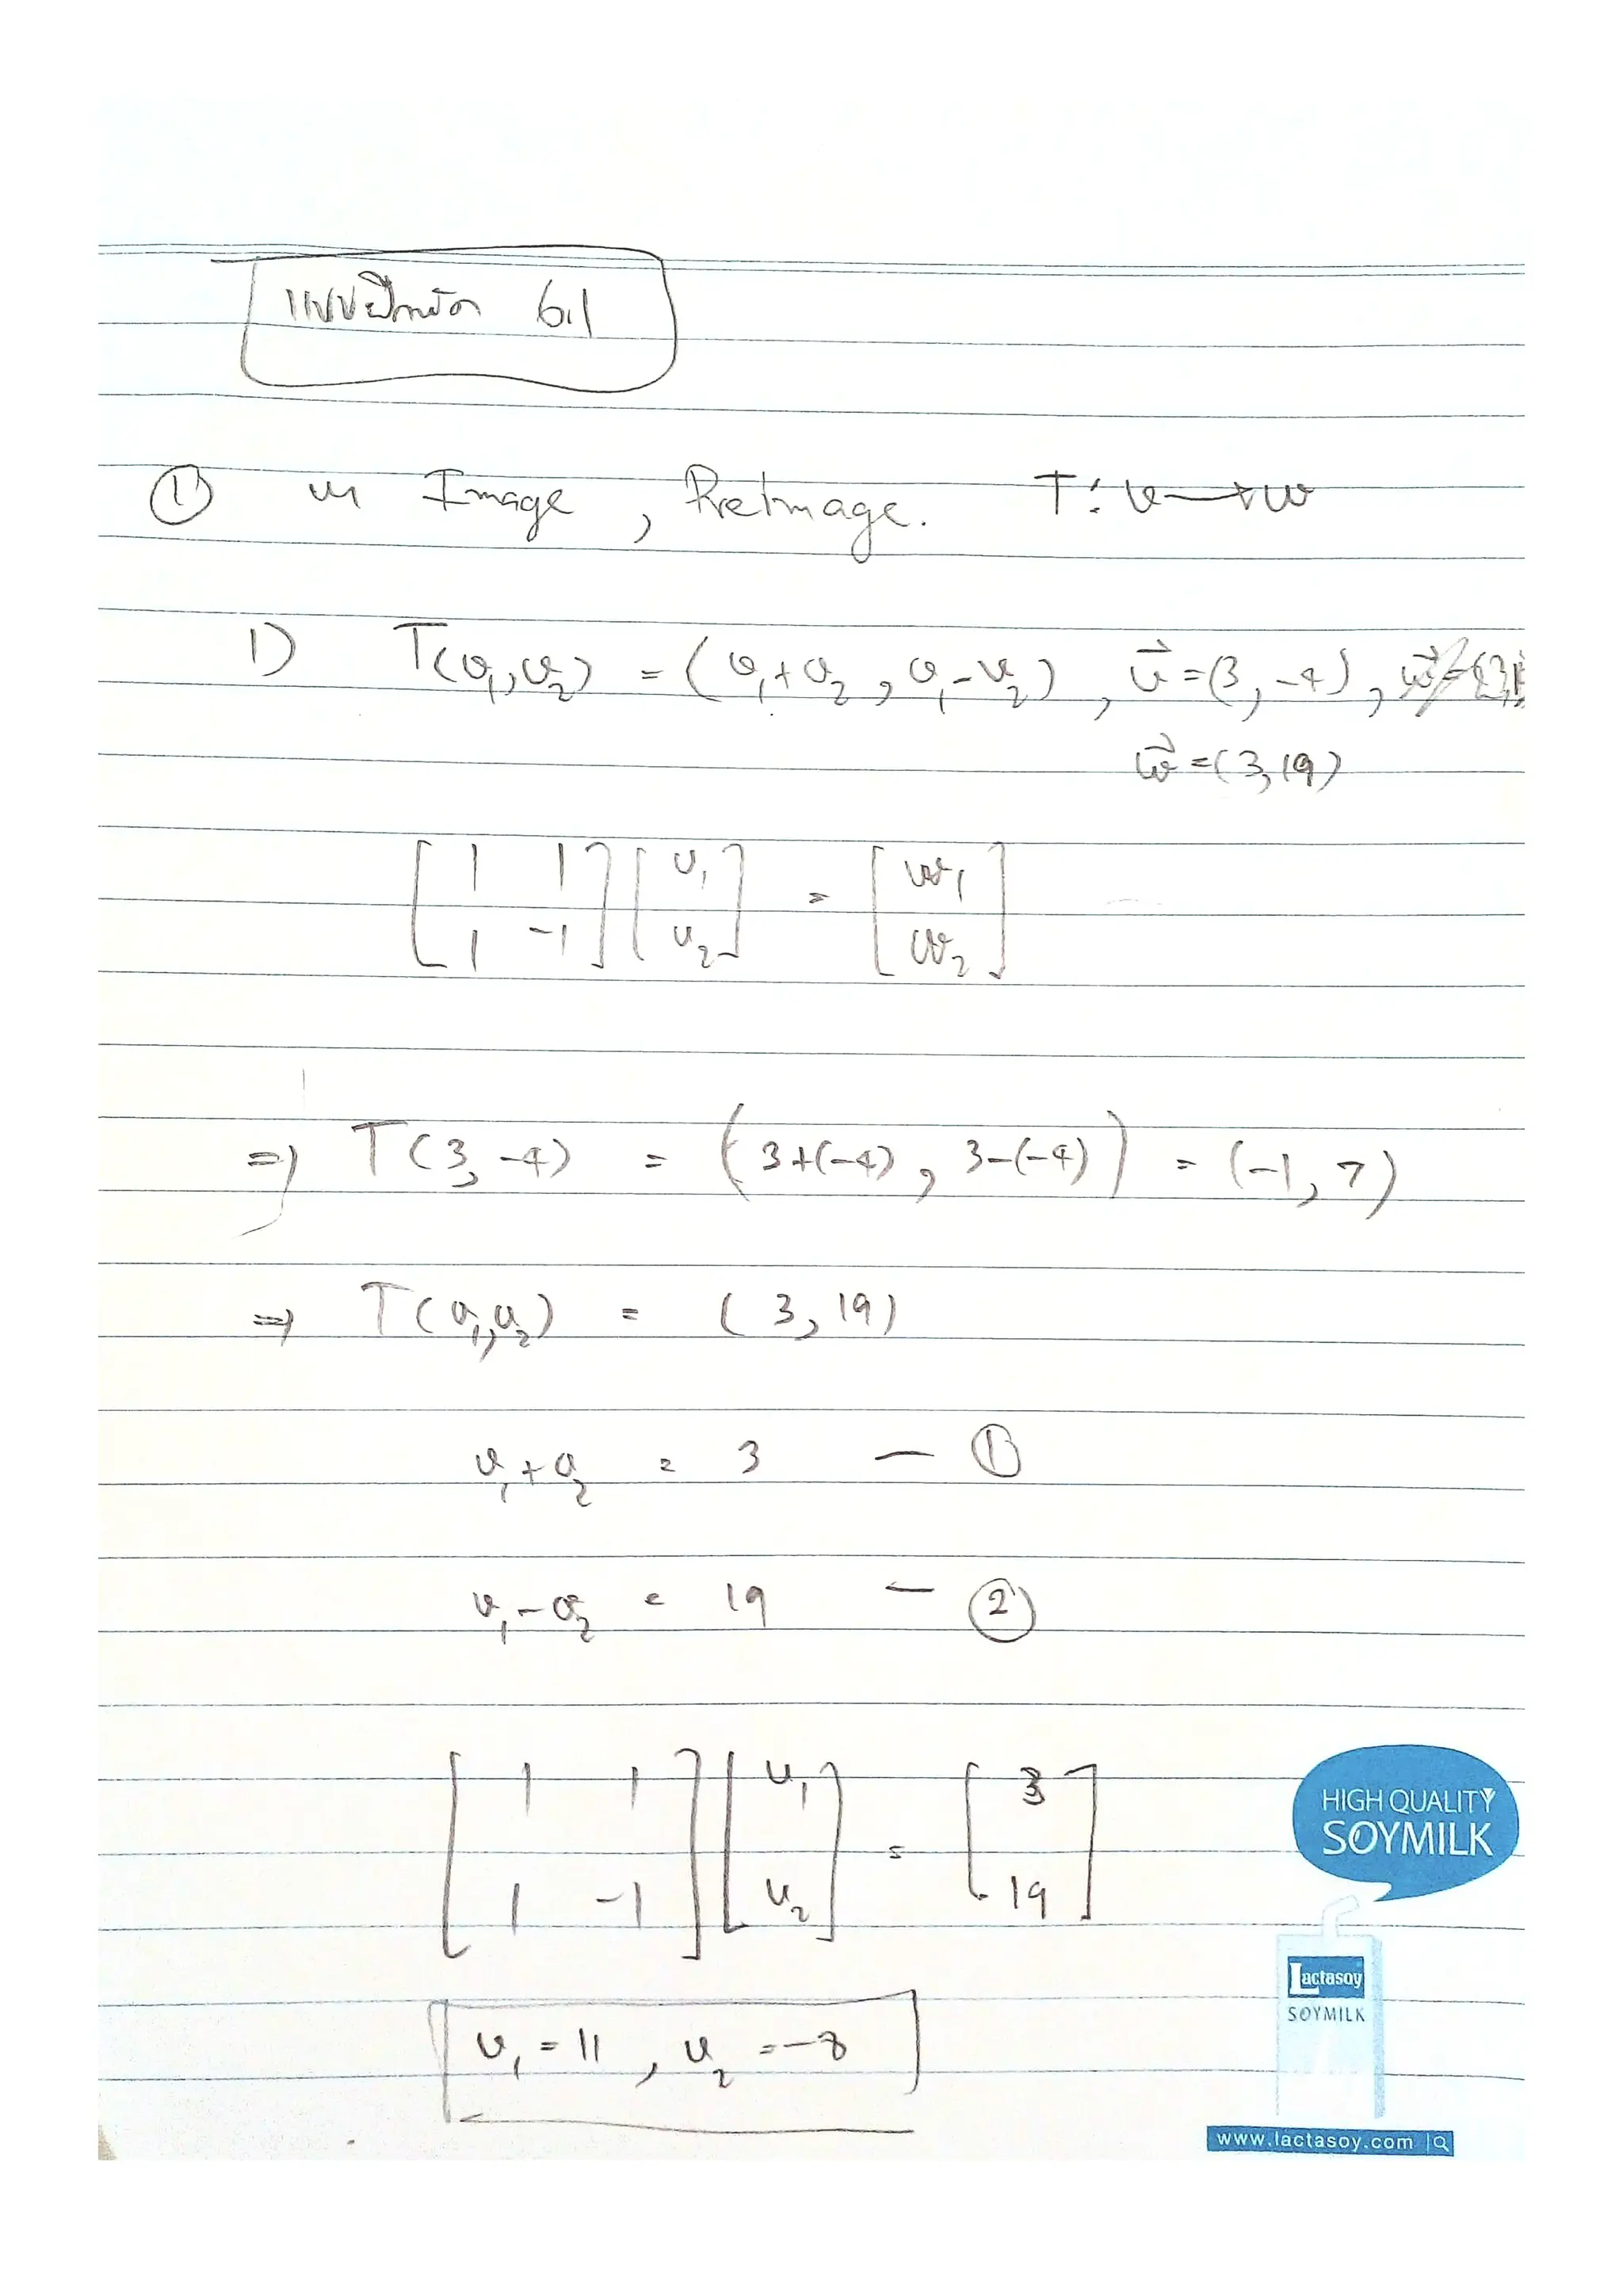 แบบฝึกหัด 6.1
① หา Image , PreImage. T: V → W
1) T(v₁,v₂) = (v₁+v₂ , v₁-v₂) , v⃗ =(3, -4) ,
w⃗ =(3,19)
[1 1] [v₁] = [w₁]
[1 -1] [v₂] [w₂]
⇒ T(3,-4) = (3+(-4) , 3-(-4)) = (-1, 7)
⇒ T(v₁,v₂) = (3, 19)
v₁+v₂ = 3 — ①
v₁-v₂ = 19 — ②
[1 1] [v₁] = [3]
[1 -1] [v₂] [19]
v₁ = 11 , v₂ = -8
HIGH QUALITY
SOYMILK
Lactasoy
SOYMILK
www.lactasoy.com